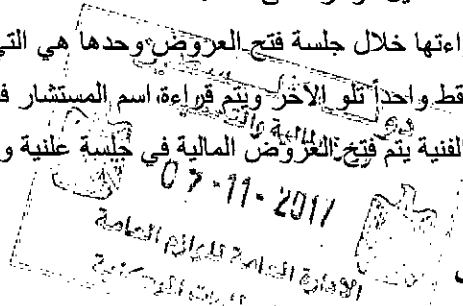 اءتها خلال جلسة فتح العروض وحدها هي التي
قط واحداً تلو الآخر ويتم قراءة اسم المستشار ف
الفنية يتم فتح العروض المالية في جلسة علنية و
07-11-2017
الإدارة العامة للوازم العامة